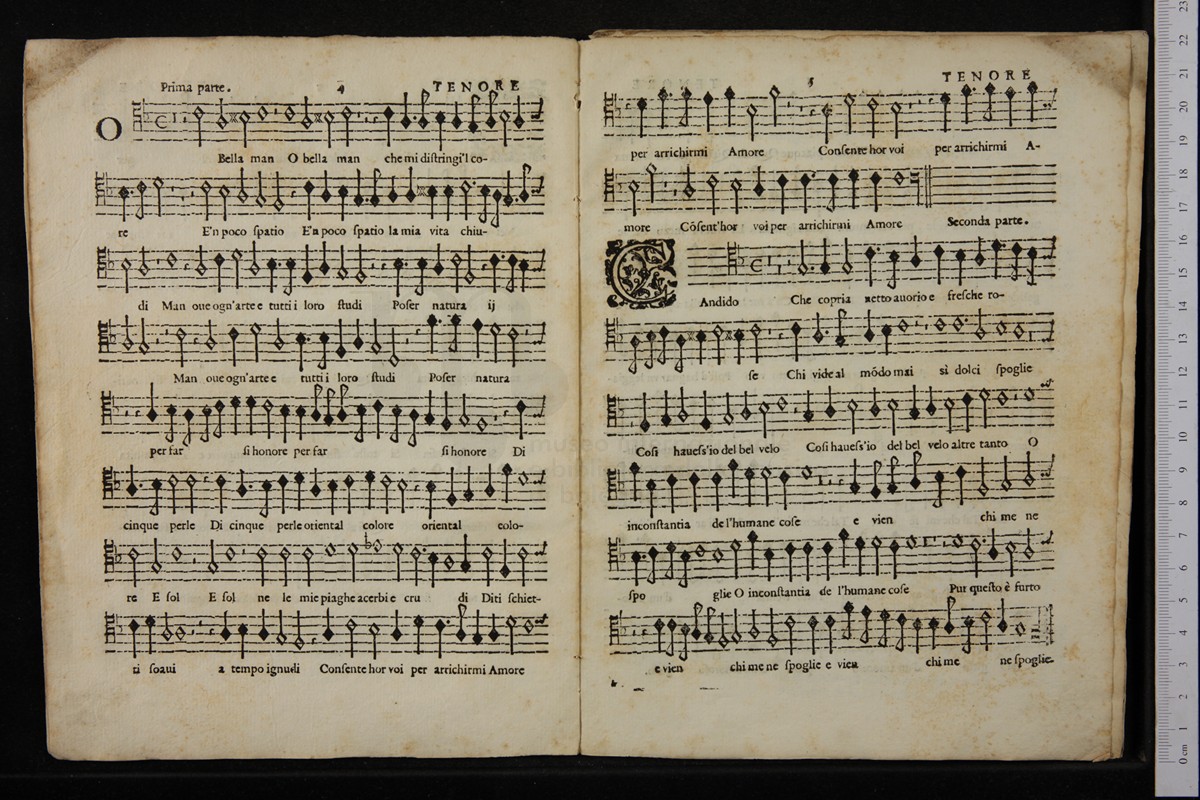 Prima parte. 4 TENORE
O Bella man O bella man che mi distringi'l co-
re E'n poco spatio E'n poco spatio la mia vita chiu-
di Man oue ogn'arte e tutti i loro studi Poser natura ij
Man oue ogn'arte e tutti i loro studi Poser natura
per far si honore per far si honore Di
cinque perle Di cinque perle oriental colore oriental colo-
re E sol E sol ne le mie piaghe acerbi e cru di Diti schiet-
ti soaui a tempo ignudi Consente hor voi per arrichirmi Amore
5 TENORE
per arrichirmi Amore Consente hor voi per arrichirmi A-
more Cõsent'hor voi per arrichirmi Amore Seconda parte.
CAndido Che copria netto auorio e fresche ro-
se Chi vide al mõdo mai sì dolci spoglie
Cosi hauess'io del bel velo Cosi hauess'io del bel velo altre tanto O
inconstantia de l'humane cose e vien chi me ne
spo glie O inconstantia de l'humane cose Pur questo è furto
e vien chi me ne spoglie e vien chi me ne spoglie.
0 cm 1 2 3 4 5 6 7 8 9 10 11 12 13 14 15 16 17 18 19 20 21 22 23